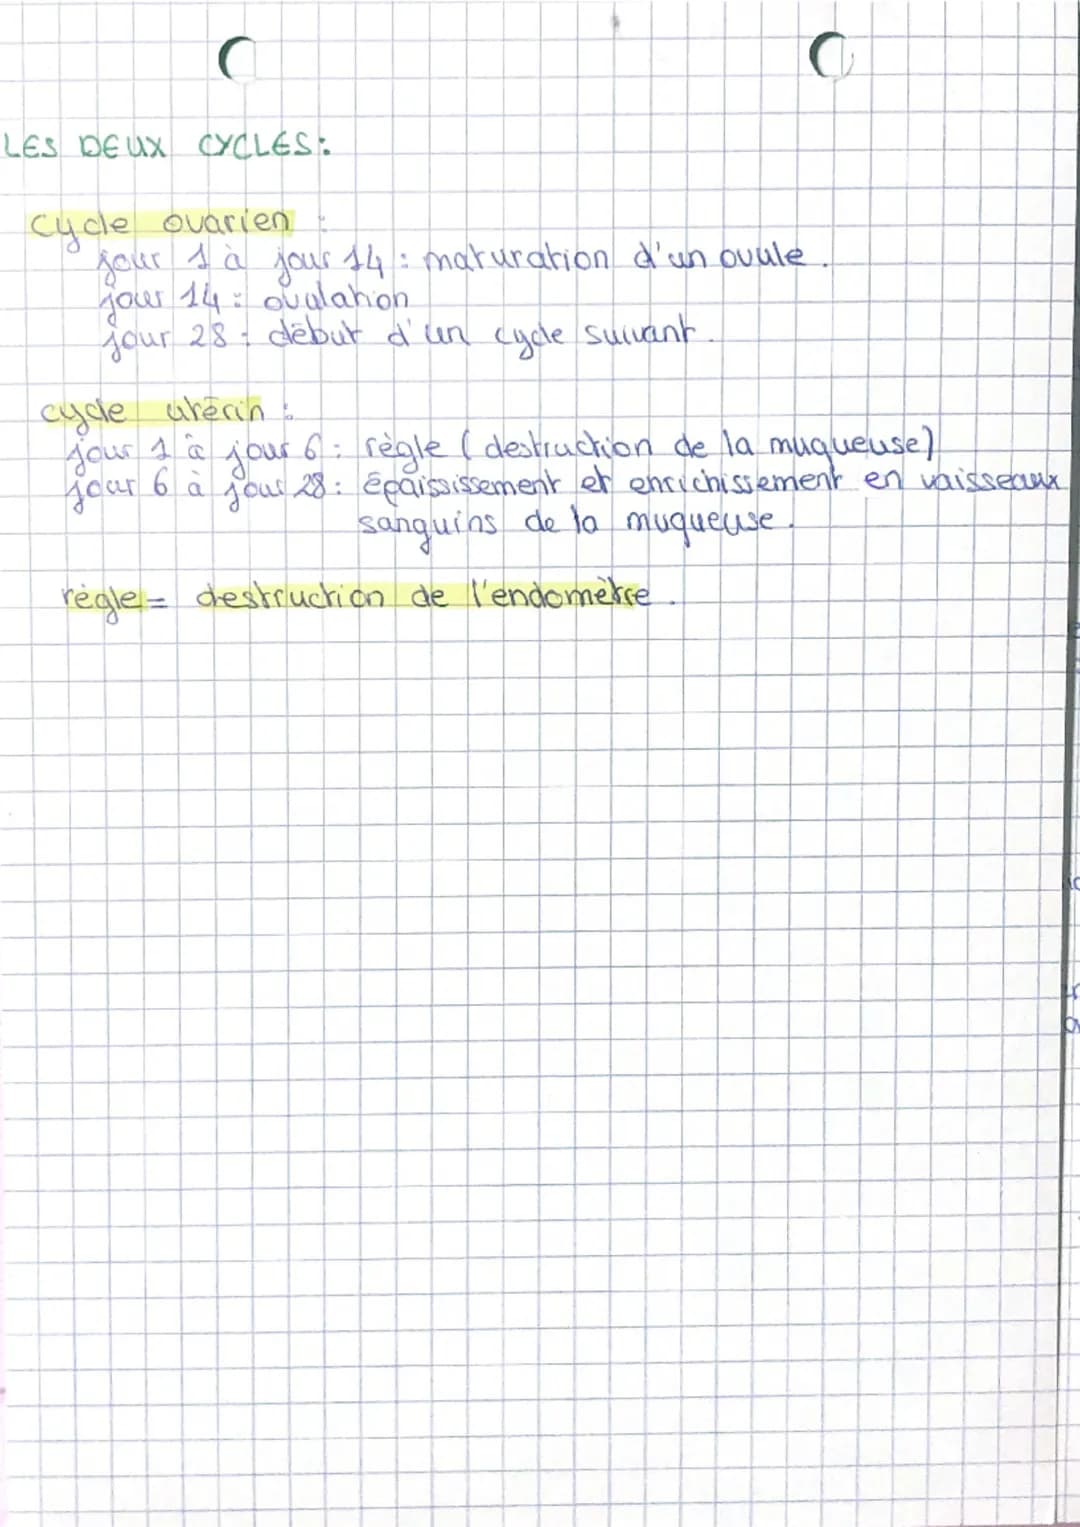 LES DEUX CYCLES:
cycle ovarien :
jour 1 à jour 14 : maturation d'un ovule.
jour 14 : ovulation
jour 28 : début d'un cycle suivant.
cycle utérin :
jour 1 à jour 6 : règle (destruction de la muqueuse)
jour 6 à jour 28 : épaississement et enrichissement en vaisseaux
sanguins de la muqueuse.
règle = destruction de l'endomètre.